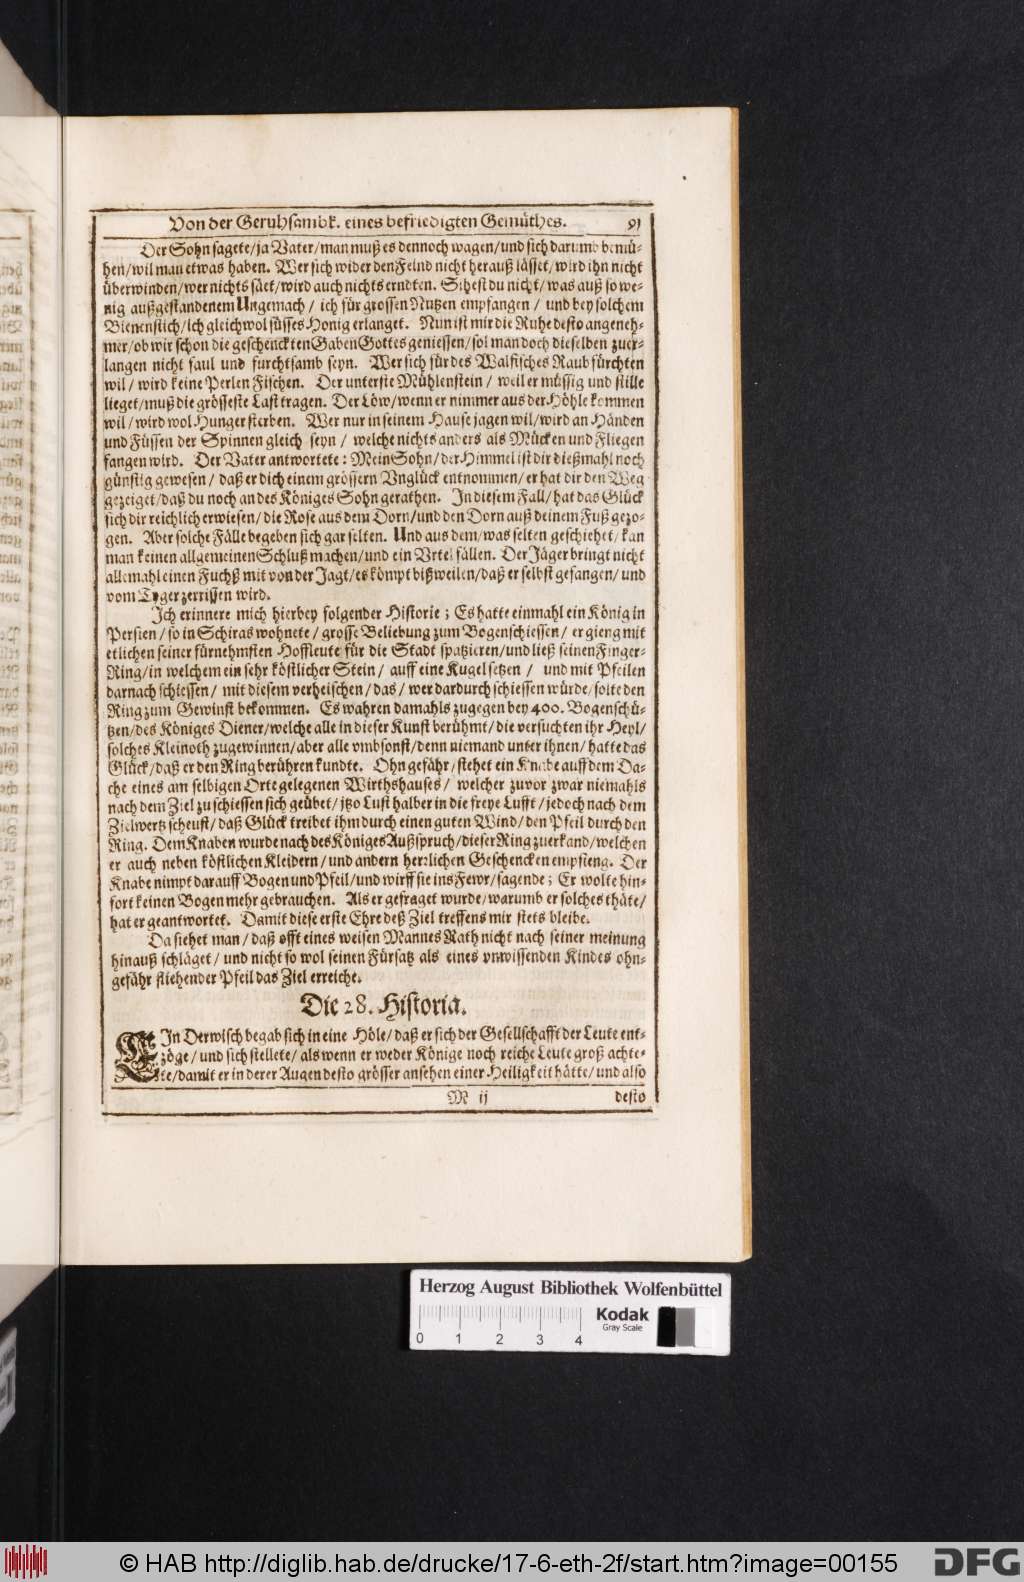 Von der Geruhsambk. eines befriedigten Gemüthes. 91
Der Sohn sagete/ja Vater/man muß es dennoch wagen/und sich darumb bemü-
hen/wil man etwas haben. Wer sich wider den Feind nicht herauß lässet/wird ihn nicht
überwinden/wer nichts säet/wird auch nichts erndten. Sihest du nicht/was auß so we-
nig außgestandenem Ungemach/ ich für grossen Nutzen empfangen/ und bey solchem
Bienenstich/ich gleichwol süsses Honig erlanget. Nun ist mir die Ruhe desto angeneh-
mer/ob wir schon die geschenckten Gaben Gottes geniessen/sol man doch dieselben zuer-
langen nicht faul und furchtsamb seyn. Wer sich für des Walfisches Raub fürchten
wil/ wird keine Perlen Fischen. Der unterste Mühlenstein/ weil er müssig und stille
lieget/muß die grösseste Last tragen. Der Löw/wenn er nimmer aus der Höhle kommen
wil/wird wol Hunger sterben. Wer nur in seinem Hause jagen wil/wird an Händen
und Füssen der Spinnen gleich seyn/ welche nichts anders als Mücken und Fliegen
fangen wird. Der Vater antwortete: Mein Sohn/der Himmel ist dir dießmahl noch
günstig gewesen/ daß er dich einem grössern Vnglück entnommen/er hat dir den Weg
gezeiget/daß du noch an des Königes Sohn gerathen. In diesem Fall/hat das Glück
sich dir reichlich erwiesen/die Rose aus dem Dorn/und den Dorn auß deinem Fuß gezo-
gen. Aber solche Fälle begeben sich gar selten. Und aus dem/was selten geschiehet/kan
man keinen allgemeinen Schluß machen/und ein Vrtel fällen. Der Jäger bringt nicht
allemahl einen Fuchß mit von der Jagt/es kömpt bißweilen/daß er selbst gefangen/und
vom Tyger zerrissen wird.
Ich erinnere mich hierbey folgender Historie; Es hatte einmahl ein König in
Persien/so in Schiras wohnete/grosse Beliebung zum Bogenschiessen/ er gieng mit
etlichen seiner fürnehmsten Hoffleute für die Stadt spatzieren/und ließ seinen Finger-
Ring/in welchem ein sehr köstlicher Stein/ auff eine Kugel setzen/ und mit Pfeilen
darnach schiessen/ mit diesem verheischen/das/ wer dardurch schiessen würde/solte den
Ring zum Gewinst bekommen. Es wahren damahls zugegen bey 400. Bogenschü-
tzen/des Königes Diener/welche alle in dieser Kunst berühmt/die versuchten ihr Heyl/
solches Kleinoth zugewinnen/aber alle vmbsonst/denn niemand unter ihnen/hatte das
Glück/daß er den Ring berühren kundte. Ohn gefähr/stehet ein Knabe auff dem Da-
che eines am selbigen Orte gelegenen Wirthshauses/ welcher zuvor zwar niemahls
nach dem Ziel zu schiessen sich geübet/itzo Lust halber in die freye Lufft/jedoch nach dem
Zielwerts scheust/daß Glück treibet ihm durch einen guten Wind/den Pfeil durch den
Ring. Dem Knaben wurde nach des Königes Außspruch/dieser Ring zuerkand/welchen
er auch neben köstlichen Kleidern/und andern herzlichen Geschencken empfieng. Der
Knabe nimpt darauff Bogen und Pfeil/und wirff sie ins Fewr/sagende; Er wolte hin-
fort keinen Bogen mehr gebrauchen. Als er gefraget wurde/warumb er solches thäte/
hat er geantwortet. Damit diese erste Ehre deß Ziel treffens mir stets bleibe.
Da siehet man/ daß offt eines weisen Mannes Rath nicht nach seiner meinung
hinauß schläget/ und nicht so wol seinen Fürsatz als eines vnwissenden Kindes ohn-
gefähr fliehender Pfeil das Ziel erreiche.
Die 28. Historia.
EIn Derwisch begab sich in eine Höle/daß er sich der Gesellschafft der Leute ent-
zöge/ und sich stellete/als wenn er weder Könige noch reiche Leute groß achte-
te/damit er in derer Augen desto grösser ansehen einer Heiligkeit hätte/und also
M ij desto
Herzog August Bibliothek Wolfenbüttel
0 1 2 3 4
Kodak
Gray Scale
© HAB http://diglib.hab.de/drucke/17-6-eth-2f/start.htm?image=00155
DFG